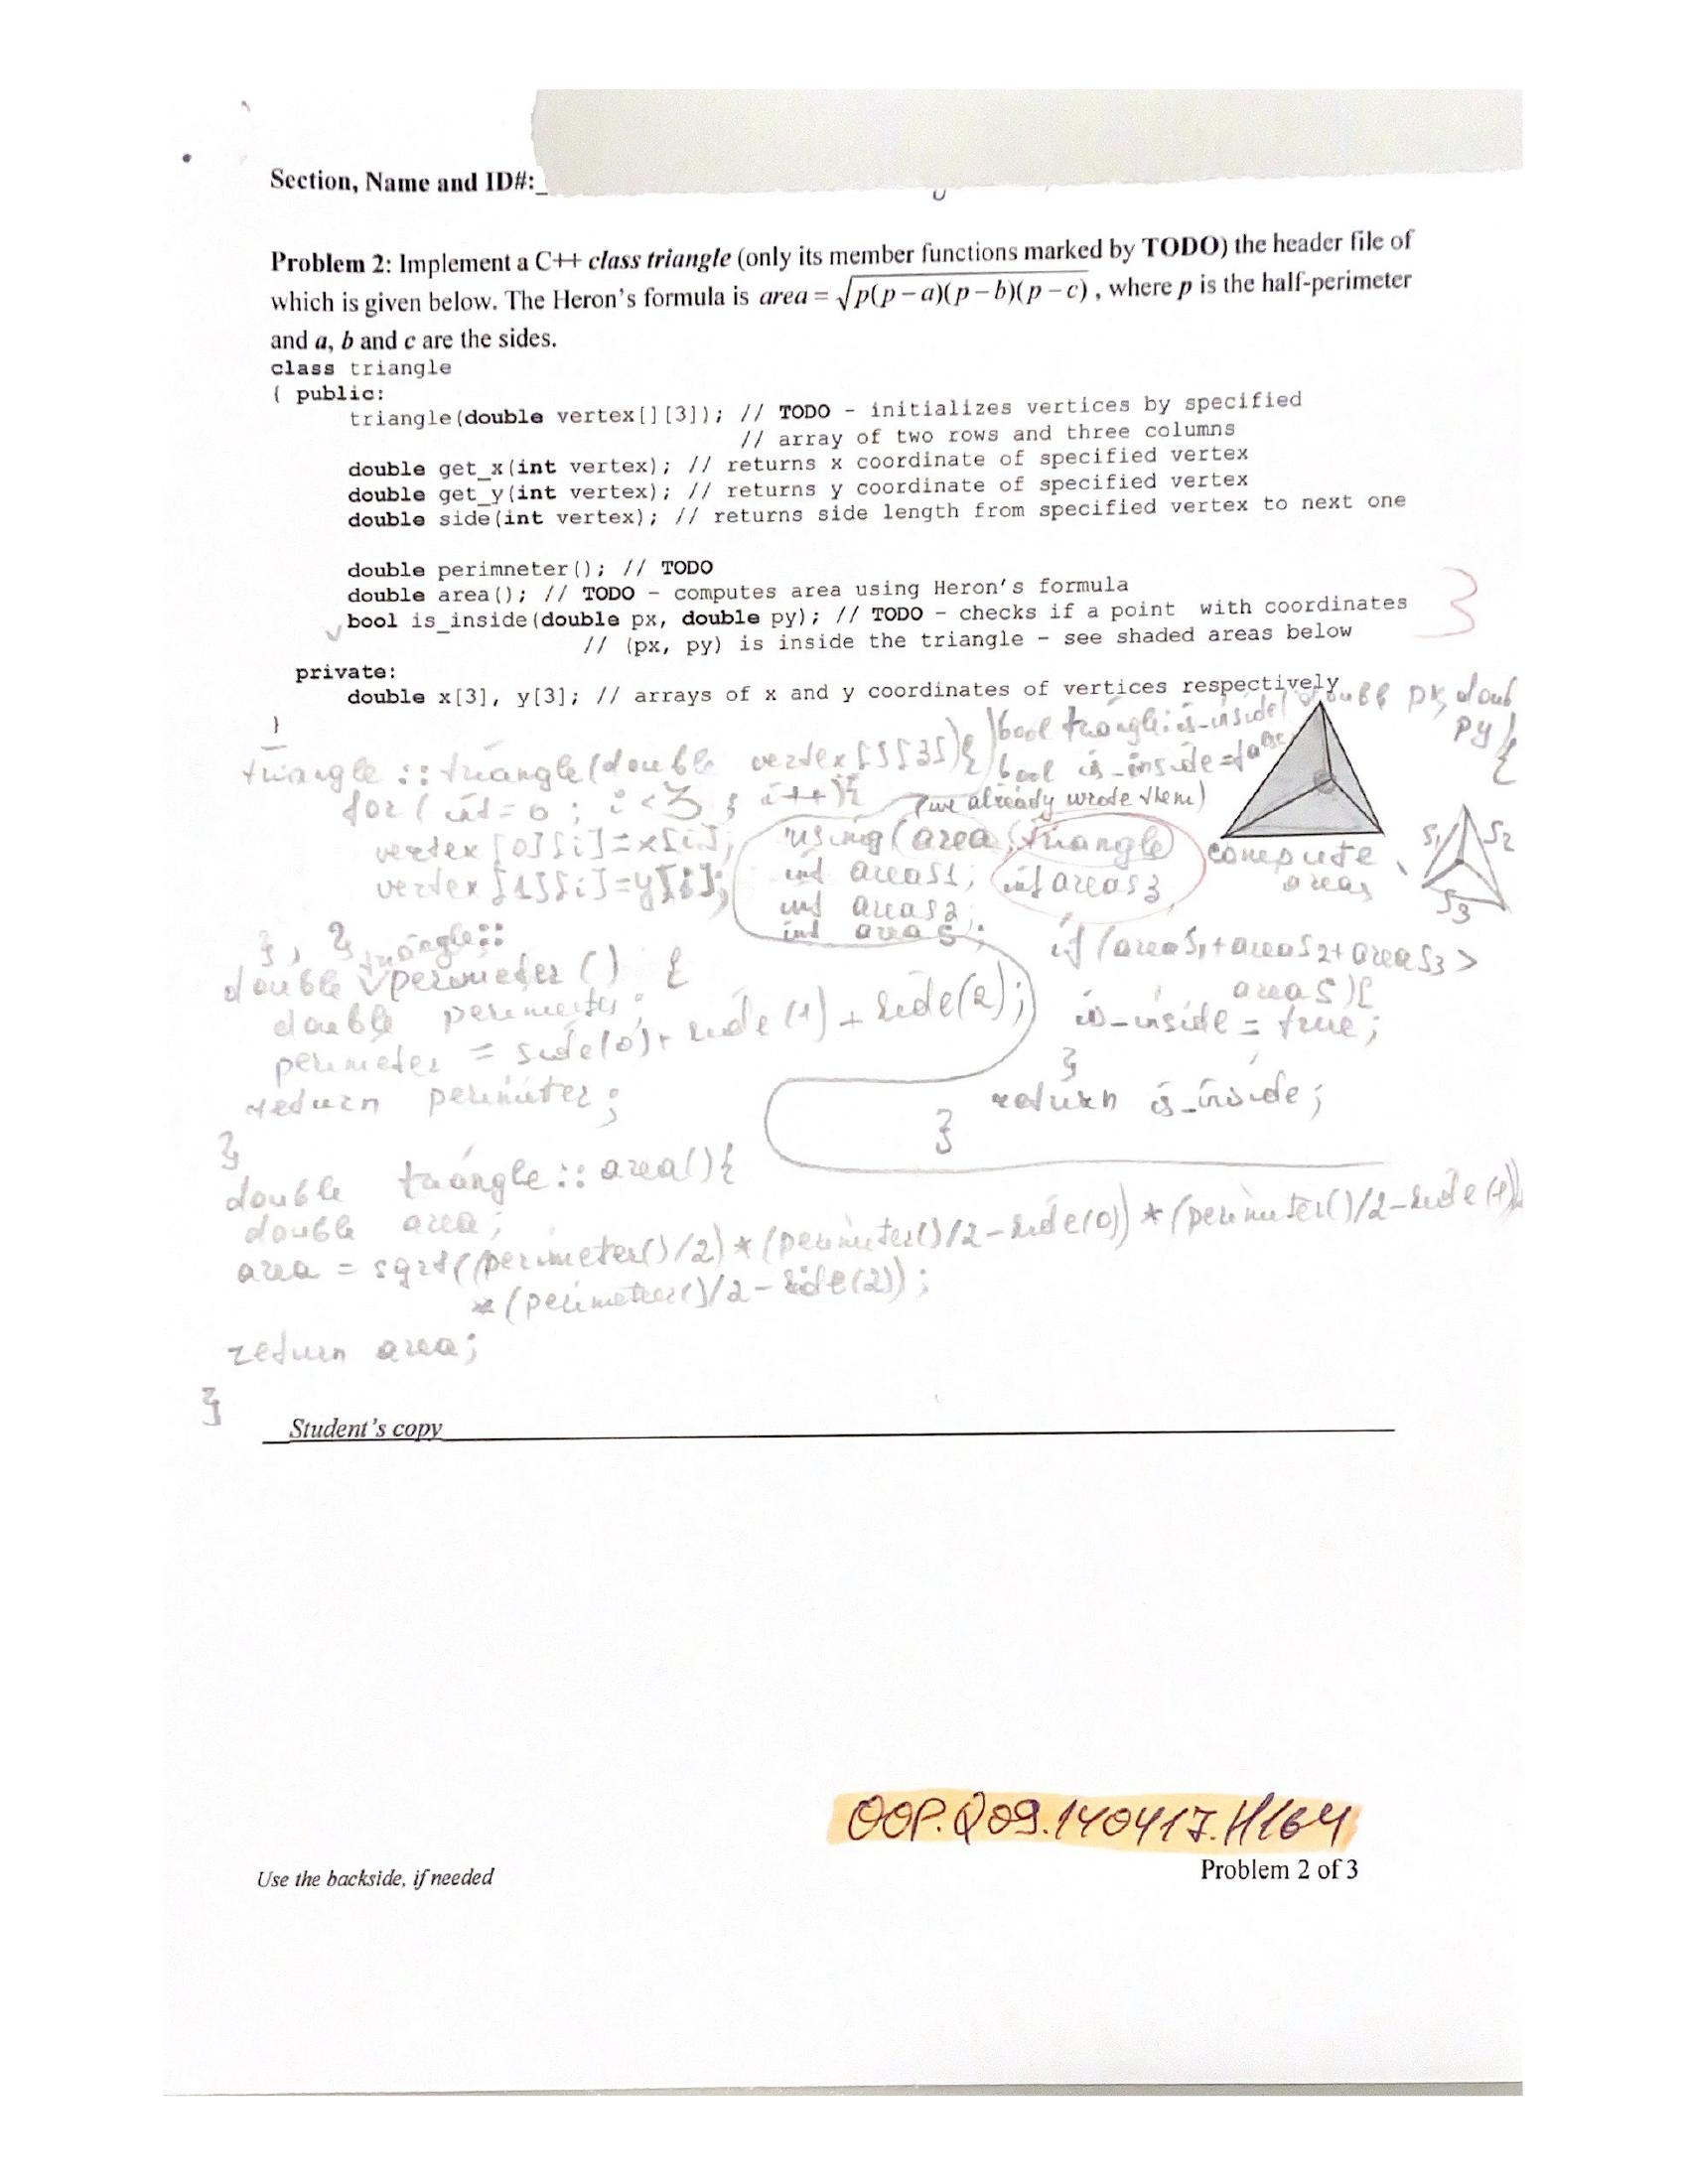 Section, Name and ID#:_
Problem 2: Implement a C++ class triangle (only its member functions marked by TODO) the header file of
which is given below. The Heron's formula is area = √p(p−a)(p−b)(p−c) , where p is the half-perimeter
and a, b and c are the sides.
class triangle
{ public:
triangle(double vertex[][3]); // TODO - initializes vertices by specified
// array of two rows and three columns
double get_x(int vertex); // returns x coordinate of specified vertex
double get_y(int vertex); // returns y coordinate of specified vertex
double side(int vertex); // returns side length from specified vertex to next one
double perimneter(); // TODO
double area(); // TODO - computes area using Heron's formula
bool is_inside(double px, double py); // TODO - checks if a point with coordinates
// (px, py) is inside the triangle - see shaded areas below
3
private:
double x[3], y[3]; // arrays of x and y coordinates of vertices respectively
}
triangle :: triangle(double vertex[][3]){
for( int=0 ; i<3 ; i++){
vertex [0][i]=x[i];
vertex [1][i]=y[i];
}, }
triangle::
double perimeter () {
double perimeter;
perimeter = side(0)+ side(1) + side(2);
return perimeter;
}
double triangle :: area(){
double area;
area = sqrt((perimeter()/2) * (perimeter()/2-side(0)) * (perimeter()/2-side(1))
* (perimeter()/2- side(2));
return area;
}
bool triangle::is_inside( double px, doub
py){
bool is_inside=false;
(we already wrote them)
using (area, triangle)
int areas1; int areas3
int areas2;
int areas;
compute
areas
S1 S2
S3
if (areaS1+areaS2+areaS3 >
areaS){
is_inside = true;
}
return is_inside;
}
Student's copy
OOP.Q09.140417.H164
Use the backside, if needed
Problem 2 of 3